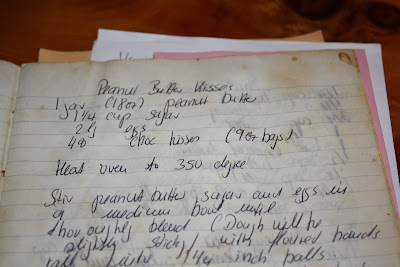 Peanut Butter Kisses
1 jar (18oz) peanut butter
1 1/4 cup sugar
2 eggs
48 choc kisses (9oz bags)
Heat oven to 350 degree
Stir peanut butter, sugar and eggs in
a medium bowl until
thoroughly blend (Dough will be
slightly sticky) with floured hands
1 1/4 inch balls